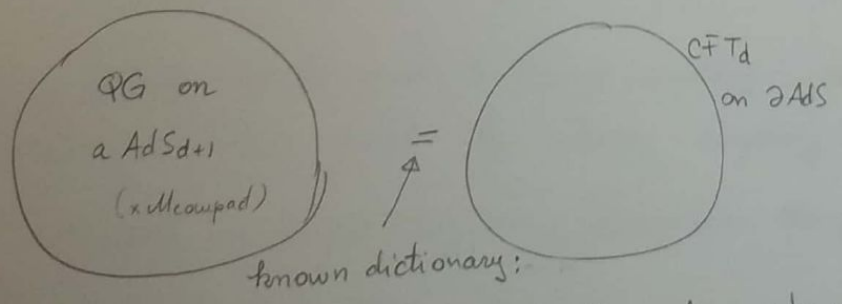 QG on
a AdS_{d+1}
(x Mcompad)
=
CFT_d
on ∂AdS
known dictionary: